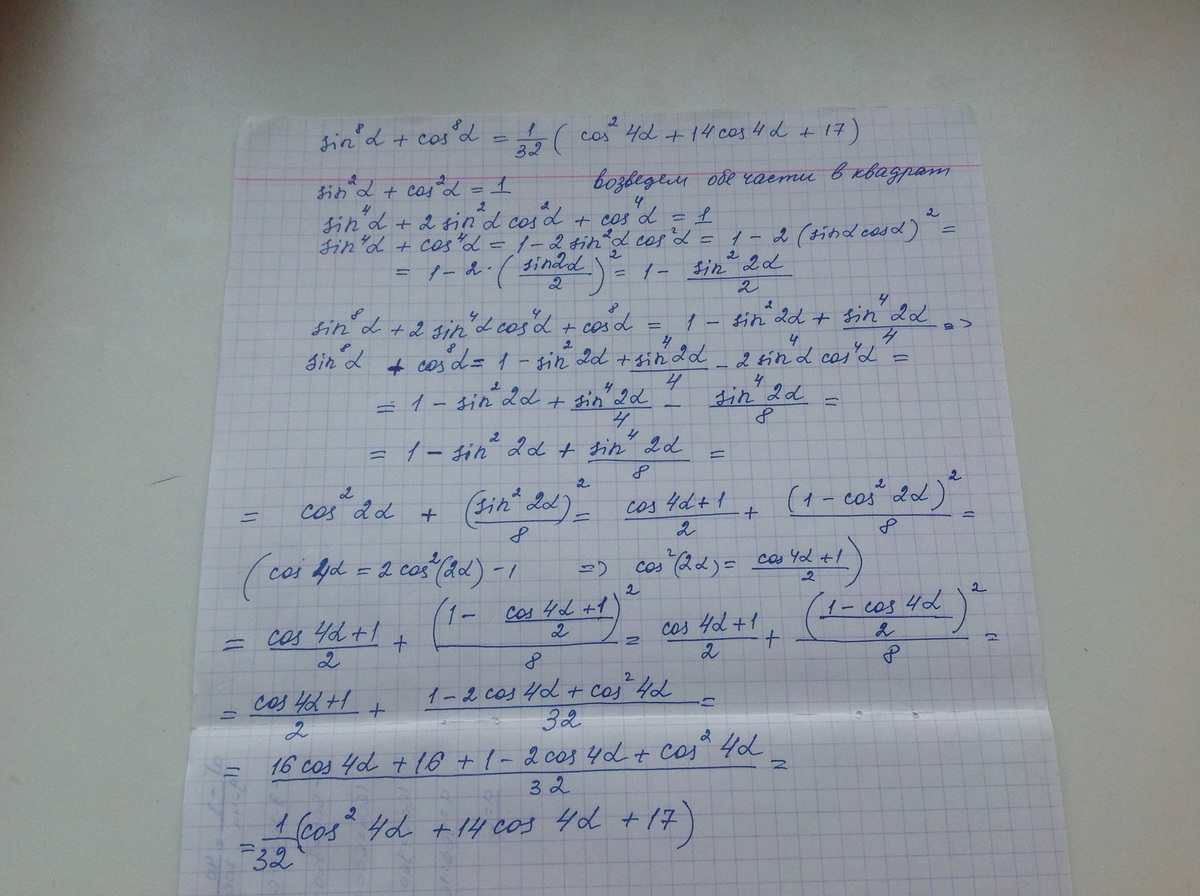 sin⁸α + cos⁸α = 1/32 ( cos² 4α + 14 cos 4α + 17)
sin²α + cos²α = 1 возведем обе части в квадрат
sin⁴α + 2 sin²α cos²α + cos⁴α = 1
sin⁴α + cos⁴α = 1 - 2 sin²α cos²α = 1 - 2 (sinα cosα)² =
= 1 - 2 · (sin2α/2)² = 1 - sin² 2α/2
sin⁸α + 2 sin⁴α cos⁴α + cos⁸α = 1 - sin² 2α + sin⁴ 2α/4 =>
sin⁸α + cos⁸α = 1 - sin² 2α + sin⁴ 2α/4 - 2 sin⁴α cos⁴α =
= 1 - sin² 2α + sin⁴ 2α/4 - sin⁴ 2α/8 =
= 1 - sin² 2α + sin⁴ 2α/8 =
= cos² 2α + (sin² 2α)²/8 = (cos 4α + 1)/2 + (1 - cos² 2α)²/8 =
( cos 4α = 2 cos²(2α) - 1 => cos²(2α) = (cos 4α + 1)/2 )
= (cos 4α + 1)/2 + (1 - (cos 4α + 1)/2)²/8 = (cos 4α + 1)/2 + ((1 - cos 4α)/2)²/8 =
= (cos 4α + 1)/2 + (1 - 2 cos 4α + cos² 4α)/32 =
= (16 cos 4α + 16 + 1 - 2 cos 4α + cos² 4α)/32 =
= 1/32 (cos² 4α + 14 cos 4α + 17)